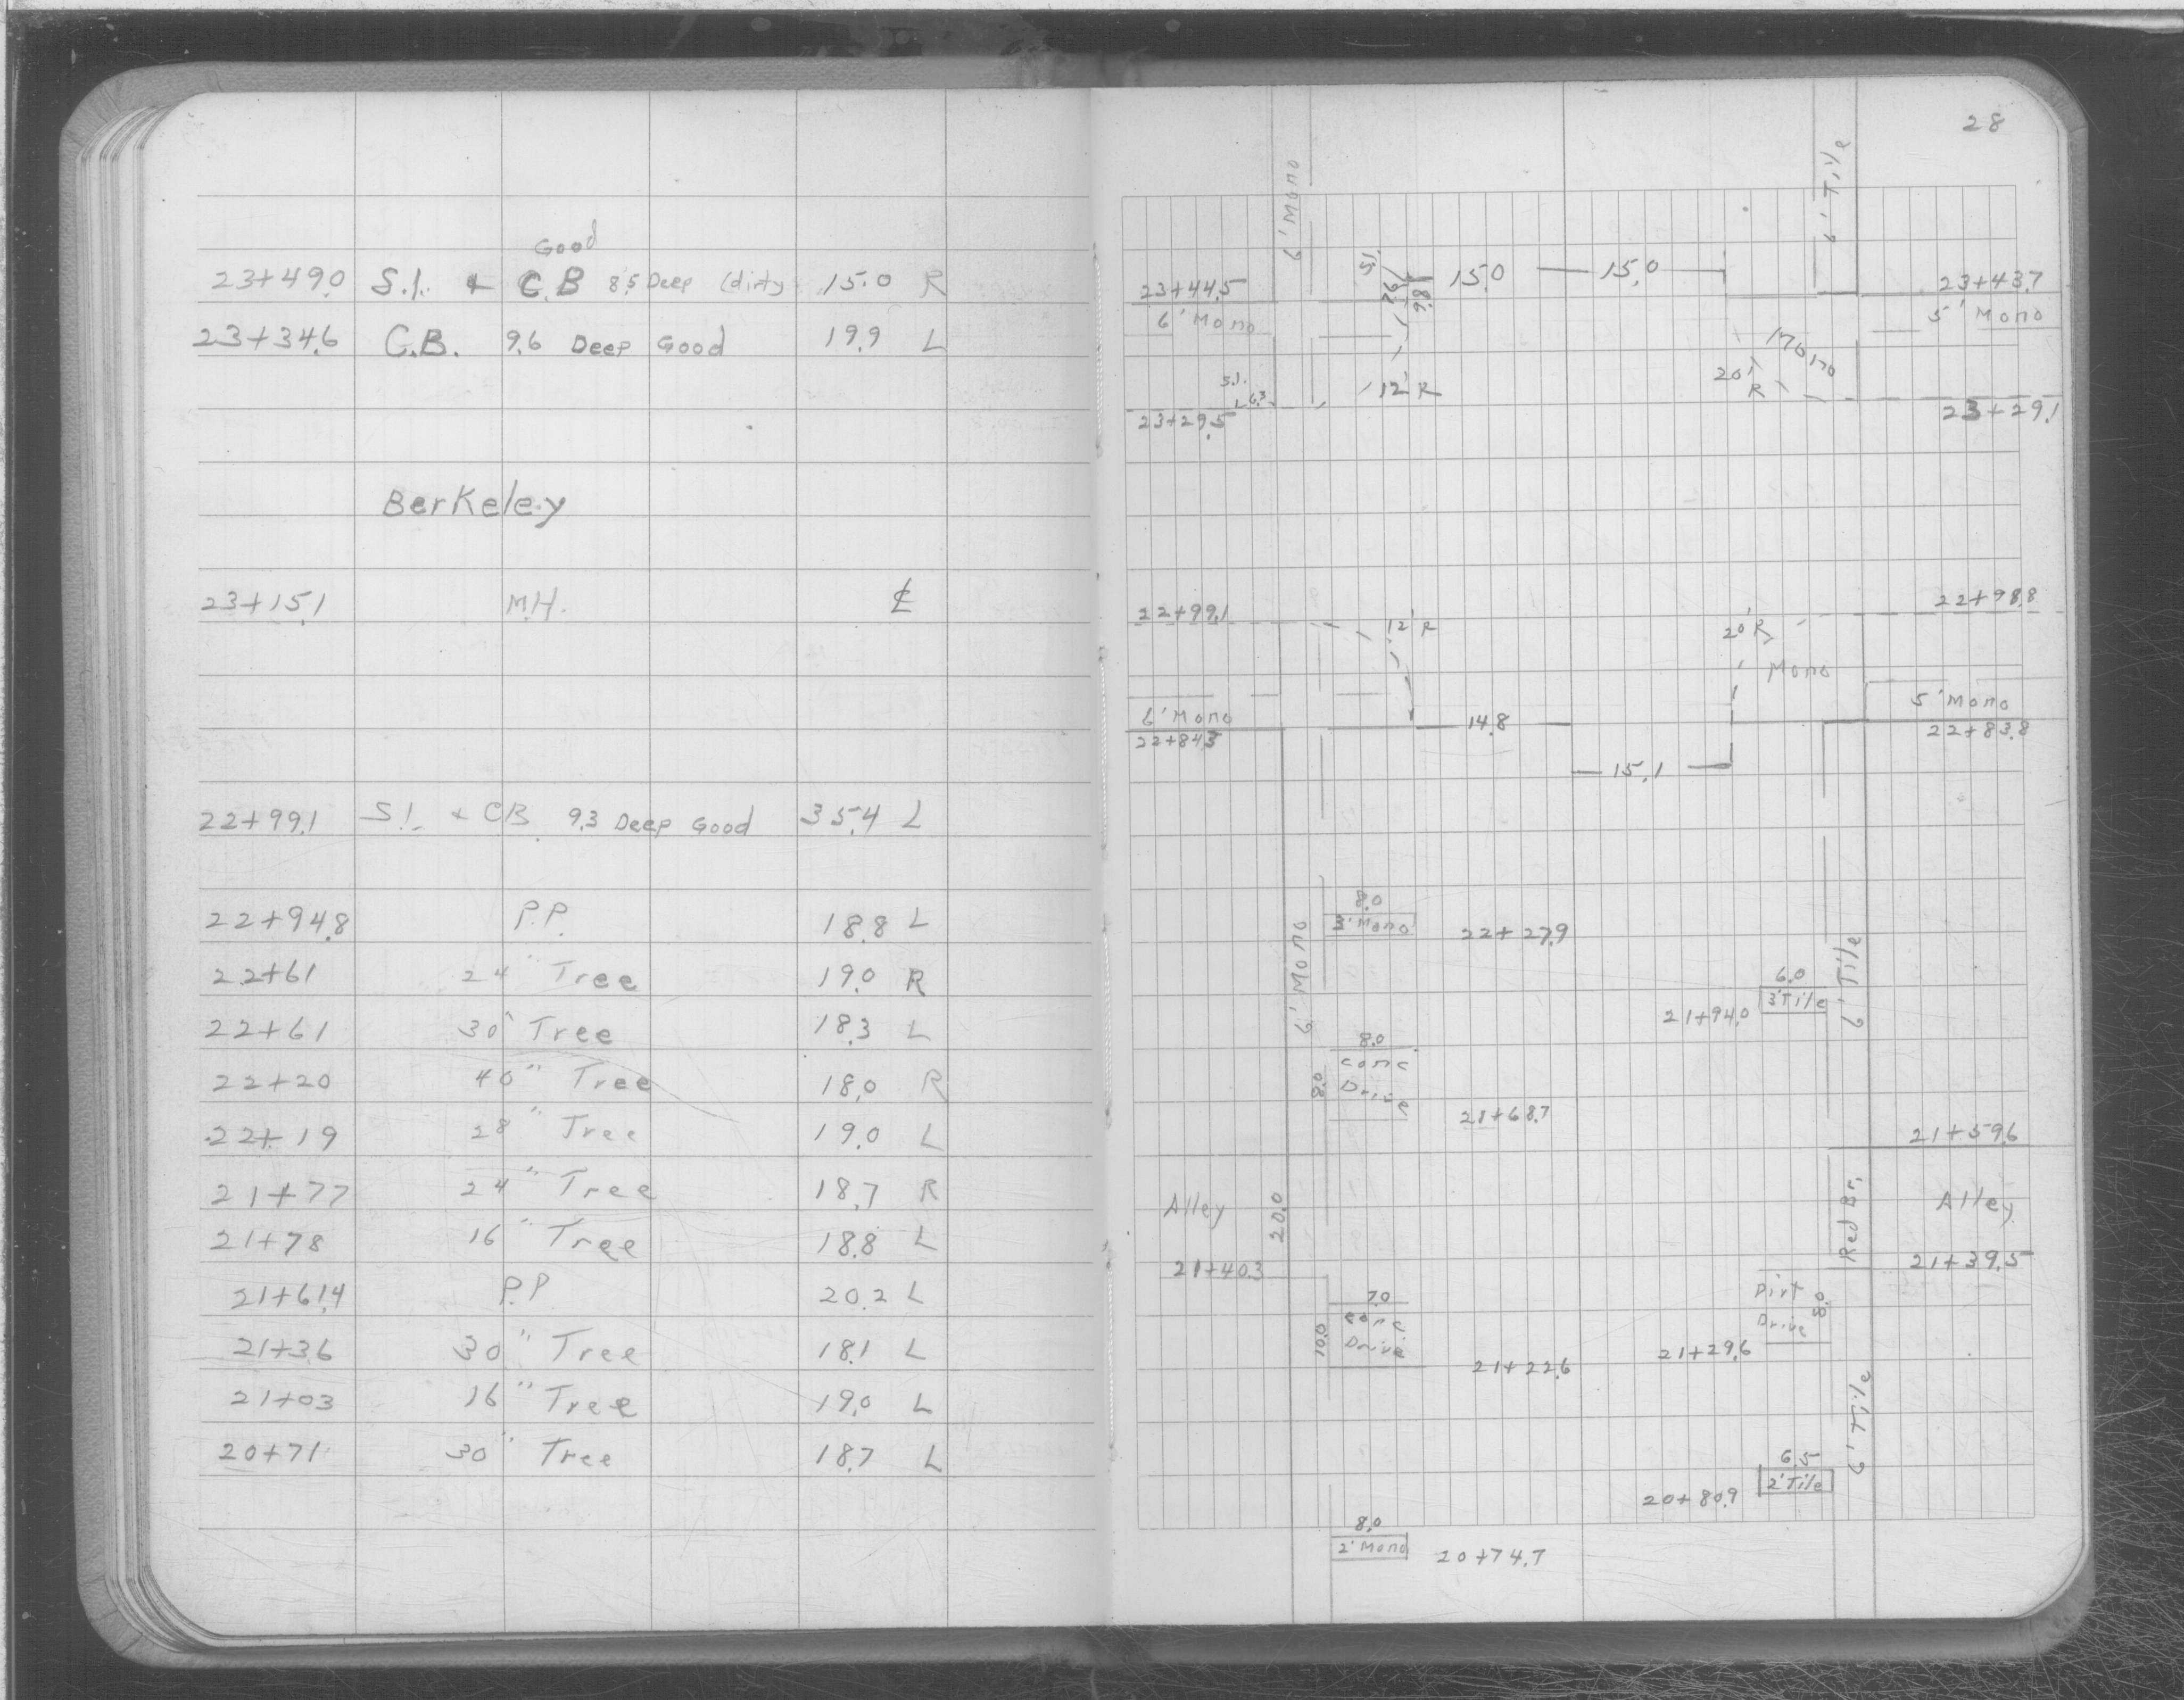 Good
23+49.0 S.I. + C.B 8.5 Deep (dirty 15.0 R
23+34.6 C.B. 9.6 Deep Good 19.9 L
Berkeley
23+15.1 M.H. ℄
22+99.1 S.I. + CB 9.3 Deep Good 35.4 L
22+94.8 P.P. 18.8 L
22+61 24" Tree 19.0 R
22+61 30" Tree 18.3 L
22+20 40" Tree 18.0 R
22+19 28" Tree 19.0 L
21+77 24" Tree 18.7 R
21+78 16" Tree 18.8 L
21+61.4 P.P. 20.2 L
21+36 30" Tree 18.1 L
21+03 16" Tree 19.0 L
20+71 30" Tree 18.7 L
28
6' Mono
6' Tile
23+44.5 S.I. 9.81 15.0 15.0 23+43.7
6' Mono 5' Mono
Mono
S.I. 12' R 20' R
L 6.3
23+29.5 23+29.1
22+99.1 12' R 20' R 22+98.8
Mono
6' Mono 5' Mono
22+84.3 14.8 22+83.8
15.1
8.0
3' Mono 22+27.9
6' Mono
6' Tile
6.0
3' Tile
21+94.0
8.0
conc
Drive
8.0
21+68.7
21+59.6
Alley 20.0 Red Br. Alley
21+40.3 21+39.5
7.0
conc
Drive
10.0
21+22.6
Dirt
Drive
8.0
21+29.6
6' Tile
6.5
2' Tile
20+80.9
8.0
2' Mono 20+74.7